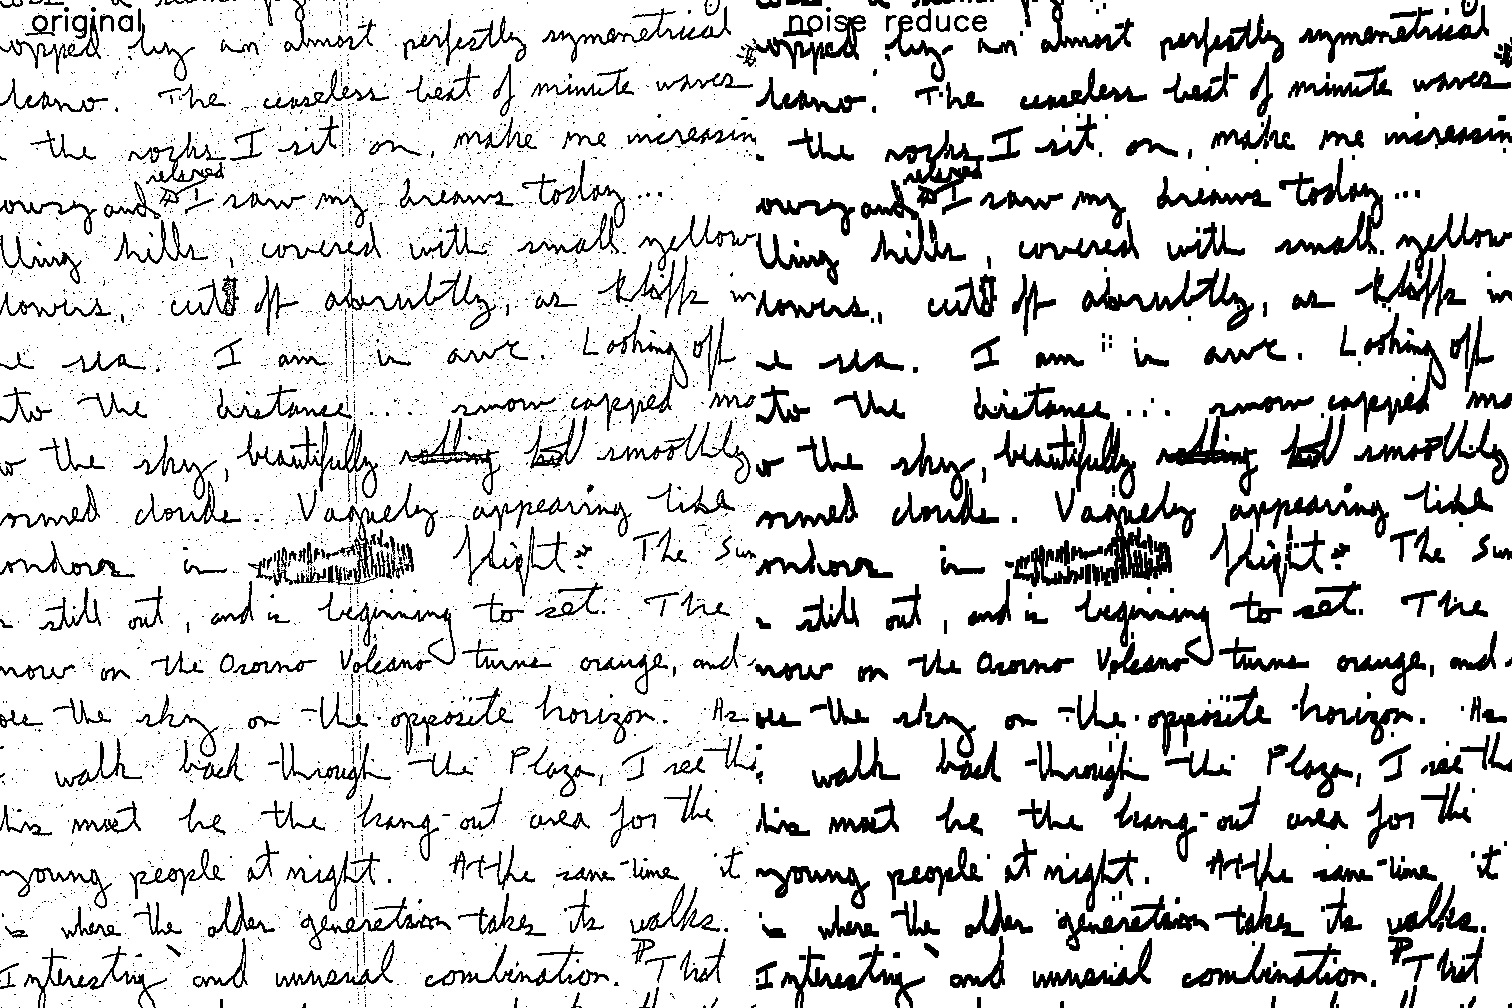 original
opped by an almost perfectly symmetrical
lcano. The ceaseless beat of minute waves
the rocks I sit on, make me increasin
relived
owsy and I saw my dreams today...
lling hills, covered with small yellow
lowers, cuts off abruptly, as cliffs in
e sea. I am in awe. Looking off
nto the distance... snow capped mo
w the sky, beautifully rolling smoothly
ormed clouds. Vaguely appearing like
ondors in flight. The Sun
still out, and is beginning to set. The
now on the Osorno Volcano turns orange, and
oes the sky on the opposite horizon. As
walk back through the Plaza, I see tha
his must be the hang-out area for the
young people at night. At the same time it
is where the older generation takes its walks.
Interesting and unusual combination. That
noise reduce
opped by an almost perfectly symmetrical
lcano. The ceaseless beat of minute waves
the rocks I sit on, make me increasin
relived
owsy and I saw my dreams today...
lling hills, covered with small yellow
lowers, cuts off abruptly, as cliffs in
e sea. I am in awe. Looking off
nto the distance... snow capped mo
w the sky, beautifully rolling smoothly
ormed clouds. Vaguely appearing like
ondors in flight. The Sun
still out, and is beginning to set. The
now on the Osorno Volcano turns orange, and
oes the sky on the opposite horizon. As
walk back through the Plaza, I see th
his must be the hang-out area for the
young people at night. At the same time it
is where the older generation takes its walks.
Interesting and unusual combination. That